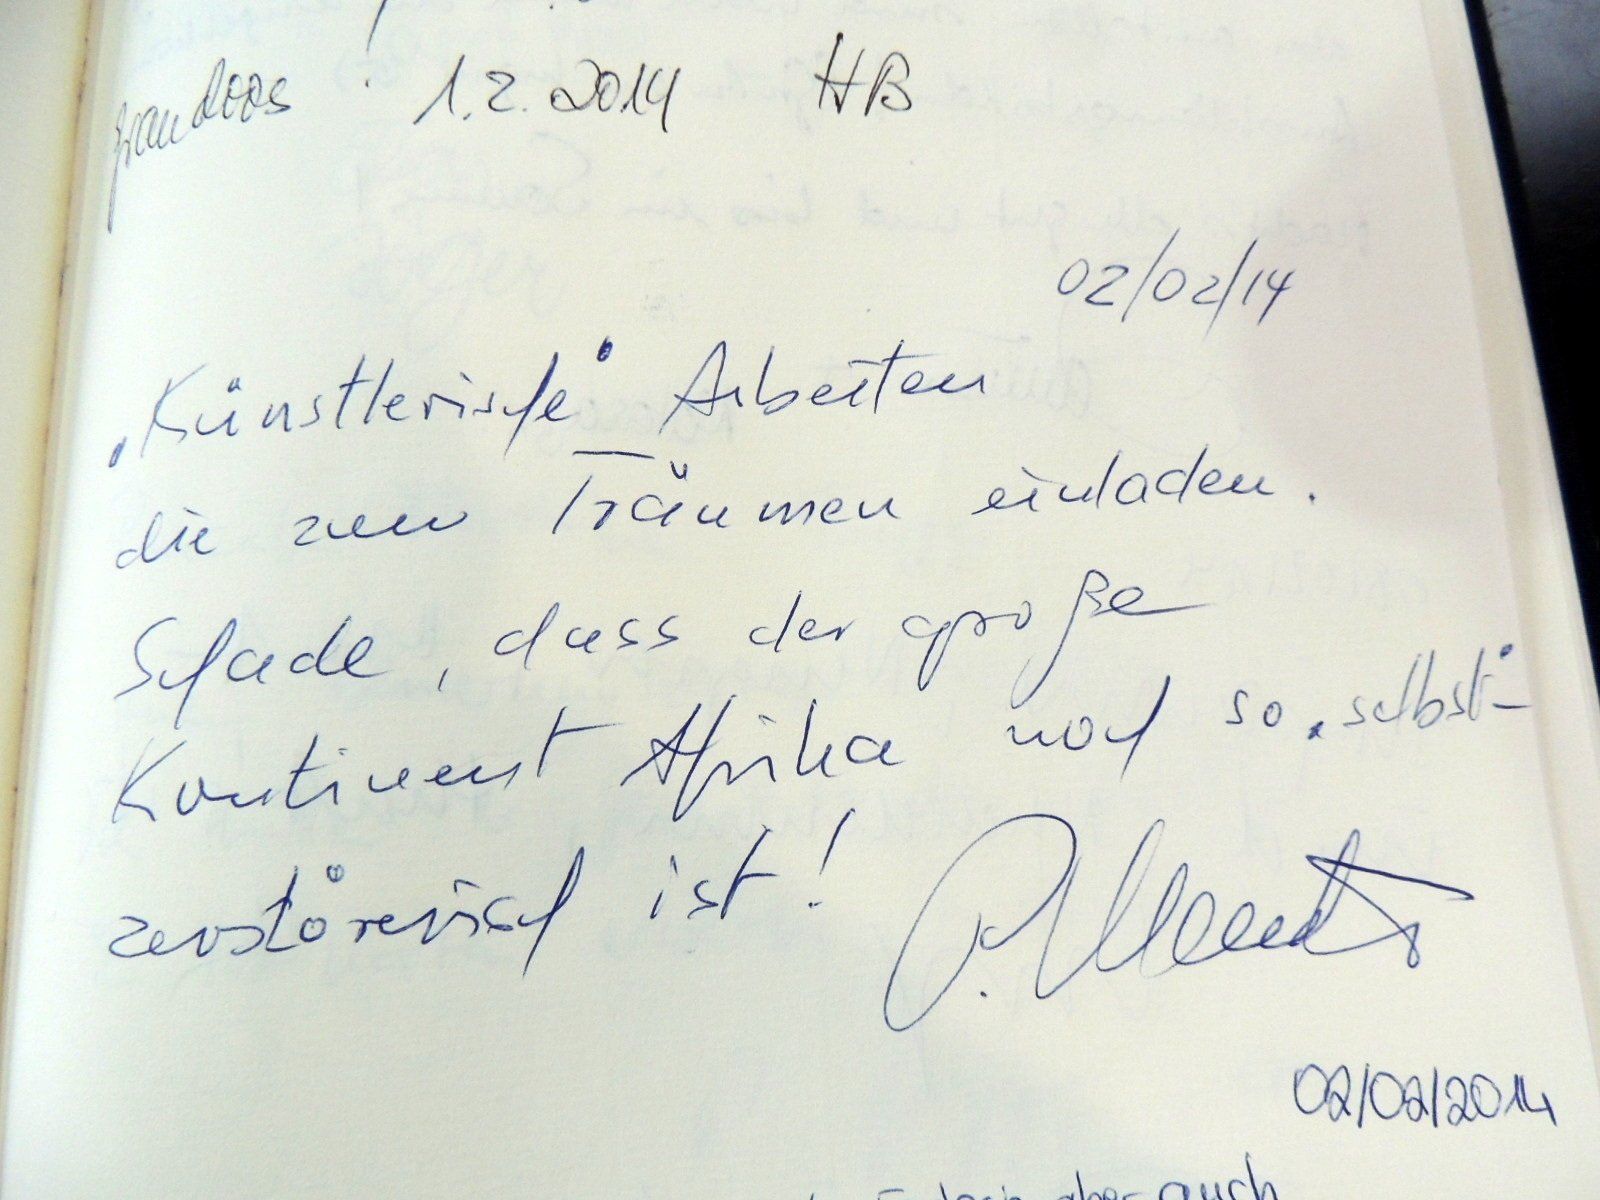 grandios ! 1.2.2014 HB
02/02/14
„Künstlerische" Arbeiten
die zum Träumen einladen.
Schade, dass der große
Kontinent Afrika noch so „selbst-
zerstörerisch ist!
02/02/2014
aber auch